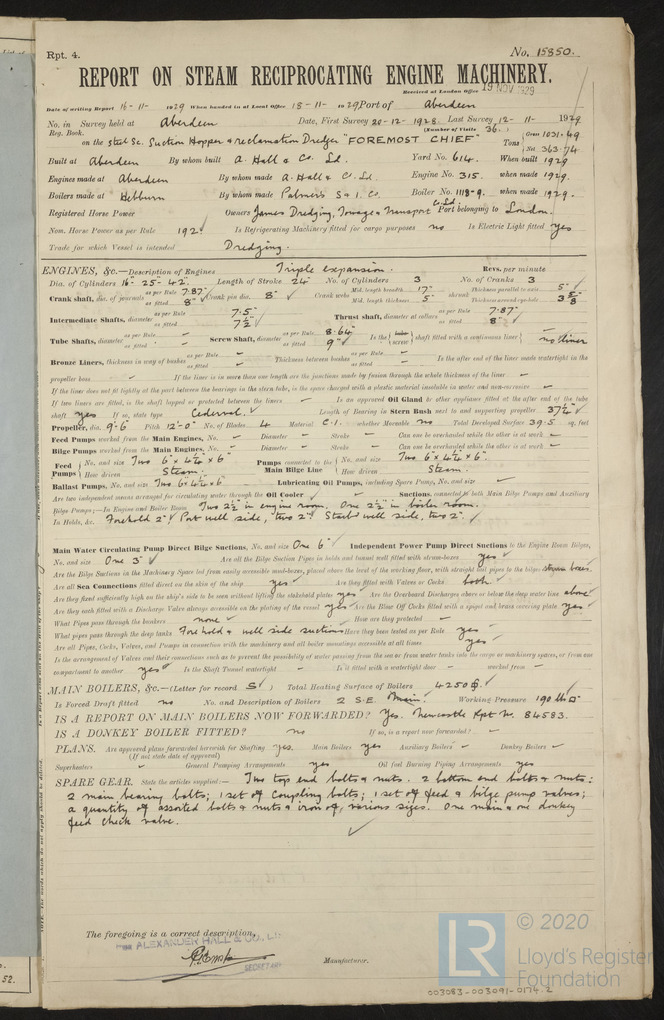 Rpt. 4.
No. 15850.
REPORT ON STEAM RECIPROCATING ENGINE MACHINERY.
Received at London Office 19 NOV 1929
Date of writing Report 16-11- 1929 When handed in at Local Office 18-11- 1929 Port of Aberdeen
No. in Survey held at Aberdeen Date, First Survey 20-12-1928. Last Survey 12-11- 1929
Reg. Book. (Number of Visits 36.)
on the steel Sc. Suction Hopper & reclamation Dredger "FOREMOST CHIEF" Tons Gross 1031.49
Net 363.74
Built at Aberdeen By whom built A. Hall & Co. Ld. Yard No. 614. When built 1929
Engines made at Aberdeen By whom made A. Hall & C. Ld. Engine No. 315. when made 1929.
Boilers made at Hebburn By whom made Palmers S & I. Co. Boiler No. 1118-9. when made 1929.
Registered Horse Power Owners James Dredging, Towage & Transport Co Ld. Port belonging to London.
Nom. Horse Power as per Rule 192. Is Refrigerating Machinery fitted for cargo purposes no Is Electric Light fitted yes
Trade for which Vessel is intended Dredging.
ENGINES, &c.—Description of Engines Triple expansion. Revs. per minute
Dia. of Cylinders 16"- 25- 42" Length of Stroke 24" No. of Cylinders 3 No. of Cranks 3
Crank shaft, dia. of journals as per Rule 7.87" as fitted 8" Crank pin dia. 8" Crank webs Mid. length breadth 17" Mid. length thickness 5" shrunk Thickness parallel to axis 5" Thickness around eyehole 3 5/8"
Intermediate Shafts, diameter as per Rule 7.5" as fitted 7½" Thrust shaft, diameter at collars as per Rule 7.87" as fitted 8"
Tube Shafts, diameter as per Rule - as fitted - Screw Shaft, diameter as per Rule 8.64" as fitted 9" Is the screw shaft fitted with a continuous liner no liner
Bronze Liners, thickness in way of bushes as per Rule - as fitted - Thickness between bushes as per Rule - as fitted - Is the after end of the liner made watertight in the
propeller boss - If the liner is in more than one length are the junctions made by fusion through the whole thickness of the liner -
If the liner does not fit tightly at the part between the bearings in the stern tube, is the space charged with a plastic material insoluble in water and non-corrosive -
If two liners are fitted, is the shaft lapped or protected between the liners - Is an approved Oil Gland or other appliance fitted at the after end of the tube
shaft yes If so, state type Cederval. Length of Bearing in Stern Bush next to and supporting propeller 37½"
Propeller, dia. 9-6 Pitch 12'-0" No. of Blades 4 Material C.I. whether Moveable no Total Developed Surface 39.5 sq. feet
Feed Pumps worked from the Main Engines, No. - Diameter - Stroke - Can one be overhauled while the other is at work -
Bilge Pumps worked from the Main Engines, No. - Diameter - Stroke - Can one be overhauled while the other is at work -
Feed Pumps No. and size Two 6" x 4½ x 6" How driven Steam. Pumps connected to the Main Bilge Line No. and size Two 6" x 4½ x 6". How driven Steam.
Ballast Pumps, No. and size Two 6" x 4½ x 6" Lubricating Oil Pumps, including Spare Pump, No. and size -
Are two independent means arranged for circulating water through the Oil Cooler Suctions, connected to both Main Bilge Pumps and Auxiliary
Bilge Pumps;—In Engine and Boiler Room Two 2½" in engine room. One 2½" in boiler room.
In Holds, &c. Forehold 2". Port well side, two 2". Starbd well side, two 2".
Main Water Circulating Pump Direct Bilge Suctions, No. and size One 6" Independent Power Pump Direct Suctions to the Engine Room Bilges,
No. and size One 3" Are all the Bilge Suction Pipes in holds and tunnel well fitted with strum-boxes yes
Are the Bilge Suctions in the Machinery Space led from easily accessible mud-boxes, placed above the level of the working floor, with straight tail pipes to the bilges strum boxes.
Are all Sea Connections fitted direct on the skin of the ship yes Are they fitted with Valves or Cocks both.
Are they fixed sufficiently high on the ship's side to be seen without lifting the stokehold plates yes Are the Overboard Discharges above or below the deep water line above
Are they each fitted with a Discharge Valve always accessible on the plating of the vessel yes Are the Blow Off Cocks fitted with a spigot and brass covering plate yes
What Pipes pass through the bunkers none How are they protected -
What pipes pass through the deep tanks Forehold & well side suctions Have they been tested as per Rule yes
Are all Pipes, Cocks, Valves, and Pumps in connection with the machinery and all boiler mountings accessible at all times yes
Is the arrangement of Valves and their connections such as to prevent the possibility of water passing from the sea or from water tanks into the cargo or machinery spaces, or from one
compartment to another yes Is the Shaft Tunnel watertight - Is it fitted with a watertight door - worked from -
MAIN BOILERS, &c.—(Letter for record S) Total Heating Surface of Boilers 4250
Is Forced Draft fitted no No. and Description of Boilers 2 S.E. Main. Working Pressure 190 lb
IS A REPORT ON MAIN BOILERS NOW FORWARDED? Yes. Newcastle Rpt No. 84583.
IS A DONKEY BOILER FITTED? no If so, is a report now forwarded? -
PLANS. Are approved plans forwarded herewith for Shafting yes. Main Boilers yes Auxiliary Boilers - Donkey Boilers -
(If not state date of approval)
Superheaters - General Pumping Arrangements yes Oil fuel Burning Piping Arrangements yes
SPARE GEAR. State the articles supplied:— Two top end bolts & nuts. 2 bottom end bolts & nuts:
2 main bearing bolts; 1 set of coupling bolts; 1 set of feed & bilge pump valves;
a quantity of assorted bolts & nuts & iron of, various sizes. One main & one donkey
feed check valve.
The foregoing is a correct description,
FOR ALEXANDER HALL & CO. LTD
SECRETARY
Manufacturer.
52.
LR
© 2020
Lloyd's Register
Foundation
003083-003091-0174.2